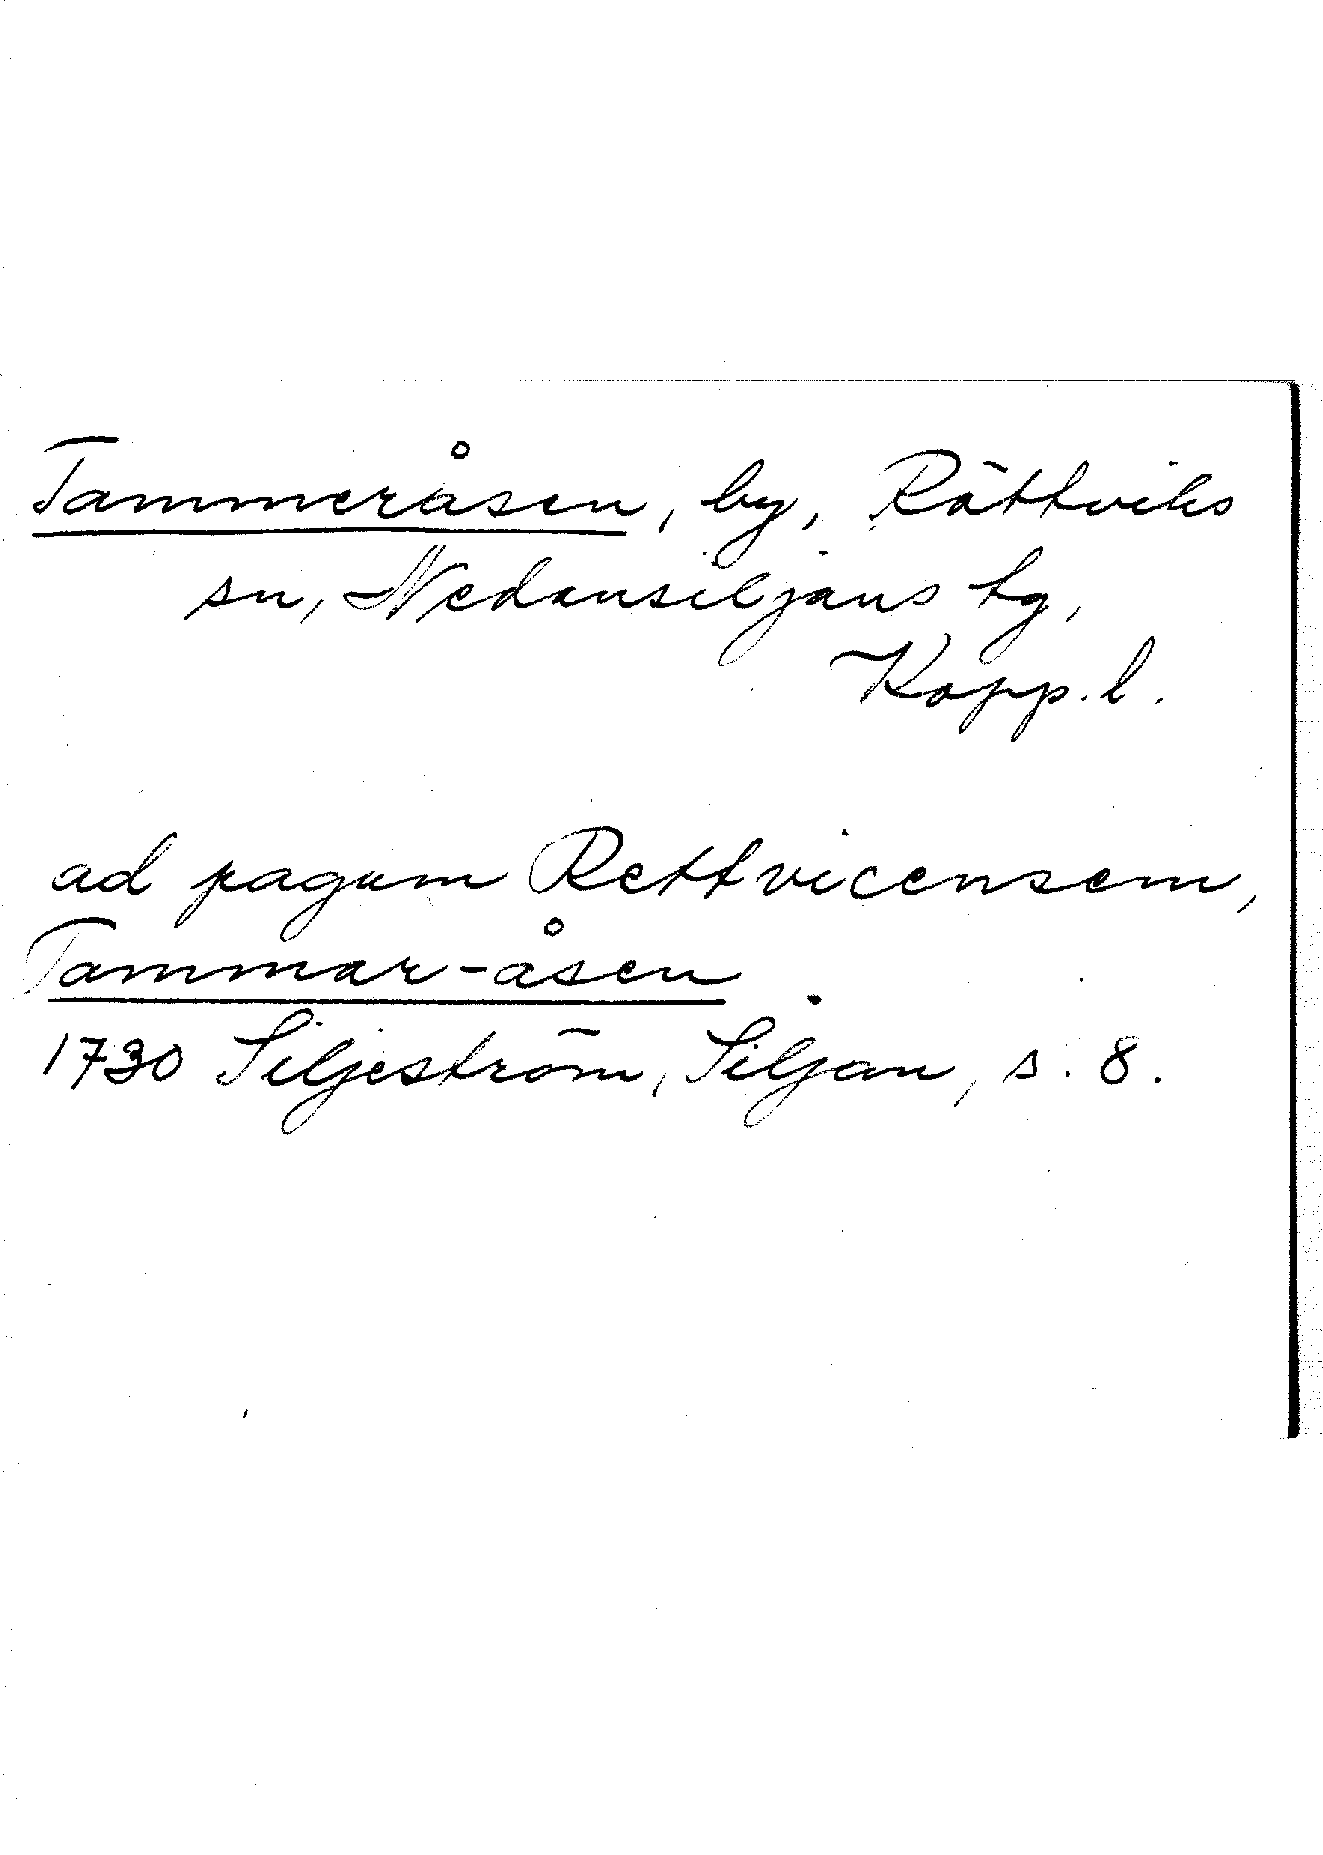 Tammeråsen, by, Rättviks
sn, Nedansiljans tg,
Kopp. l.
ad pagum Rettvicensem,
Tammar-åsen
1730 Siljeström, Siljan, s. 8.